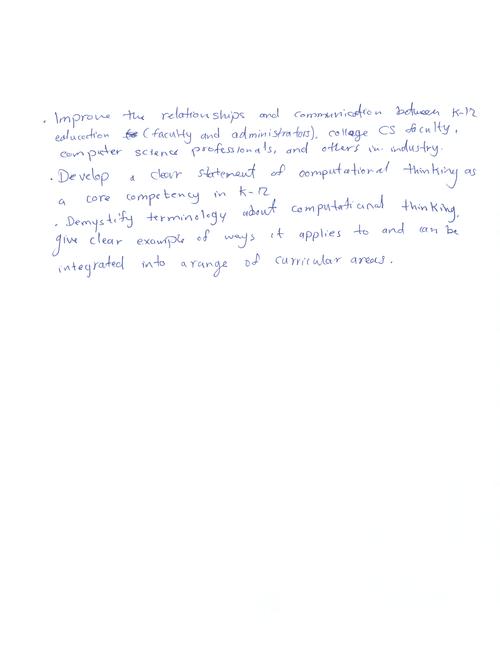 . Improve the relationships and communication between K-12
education (faculty and administrators), college CS faculty,
computer science professionals, and others in industry.
. Develop a clear statement of computational thinking as
a core competency in K-12
. Demystify terminology about computational thinking,
give clear example of ways it applies to and can be
integrated into a range of curricular areas.